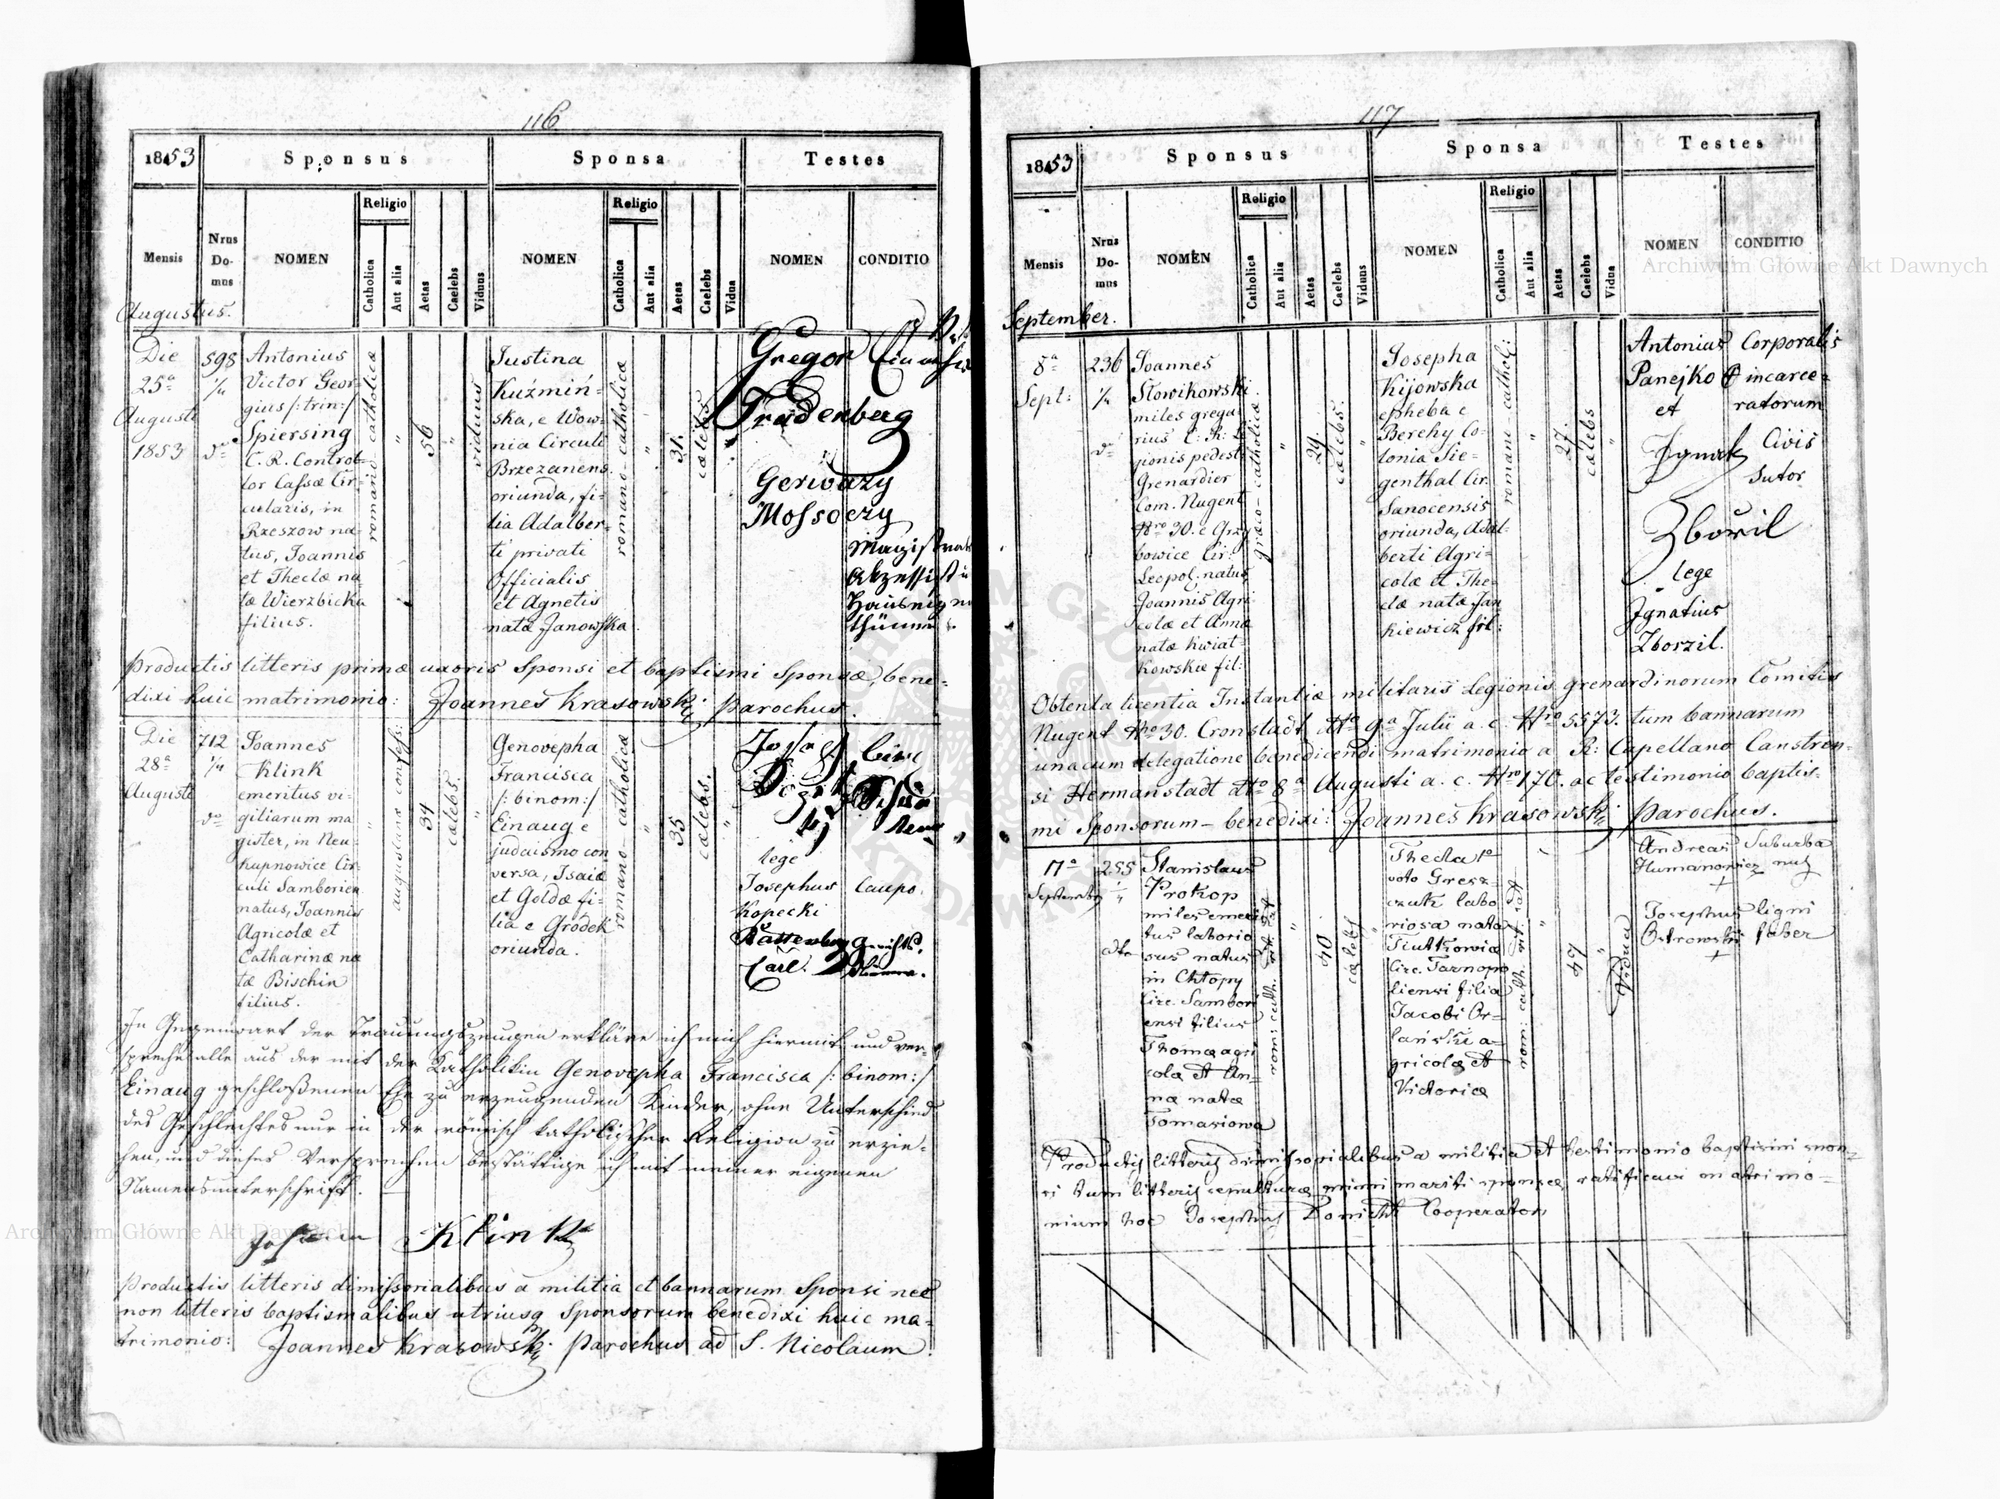 116
1853
Sponsus
Sponsa
Testes
Mensis
Nrus Do-mus
NOMEN
Religio
Catholica
Aut alia
Aetas
Caelebs
Viduus
NOMEN
Religio
Catholica
Aut alia
Aetas
Caelebs
Vidua
NOMEN
CONDITIO
Augustus.
Die
25ª
Augusti
1853
598
1/4
dº
Antonius
Victor Geor-
gius /: trin:/
Spiersing
C. R. Control-
lor Cassæ Cir-
cularis, in
Rzeszow na-
tus, Joannis
et Theclæ na-
tæ Wierzbicka
filius.
romano-catholica
"
56
"
viduus
Justina
Kuźmiń-
ska, e Wow-
nia Circuli
Brzezanens.
oriunda, fi-
lia Adalber-
ti privati
Officialis
et Agnetis
nata Janowska.
romano-catholica
"
31.
cælebs
Gregor
Fradenberg
Gerwazy
Mossoczy
Magistrats
Akzessist u
Productis litteris primæ uxoris Sponsi et baptismi Sponsæ, bene-
dixi huic matrimonio: Joannes Krasowski parochus.
Die
28ª
Augusti
712
1/4
dº
Joannes
Klink
emeritus vi-
giliarum ma-
gister, in Neu-
kupnowice Cir-
culi Samborien.
natus, Joannis
Agricolæ et
Catharinæ na-
tæ Bischin
filius.
"
augustanæ confess:
34
cælebs.
"
Genovepha
Francisca
/: binom:/
Einaug e
judaismo con
versa, Isaiæ
et Goldæ fi-
lia e Grodek
oriunda.
romano-catholica
"
35
cælebs.
"
lege
Josephus
Kopecki
Caupo.
Rattenberg
Carl.
In Gegenwart der Trauungszeugen erkläre ich mich hiermit und ver-
spreche alle aus der mit der Katholikin Genovepha Francisca /: binom:/
Einaug geschloßenen Ehe zu erzeugenden Kinder, ohne Unterschied
des Geschlechtes nur in der römisch katholischen Religion zu erzie-
hen, und dieses Versprechen bestättige ich mit meiner eigenen
Namensunterschrift.
Johann Klink
Productis litteris dimissorialibus a militia et bannarum Sponsi nec
non litteris baptismalibus utriusq Sponsorum benedixi huic ma-
trimonio: Joannes Krasowski parochus ad S. Nicolaum.
117
1853
Sponsus
Sponsa
Testes
Mensis
Nrus Do-mus
NOMEN
Religio
Catholica
Aut alia
Aetas
Caelebs
Viduus
NOMEN
Religio
Catholica
Aut alia
Aetas
Caelebs
Vidua
NOMEN
CONDITIO
September.
8ª
Sept:
236
1/4
dº
Joannes
Słowikowski
miles grega-
rius C: R: Le-
gionis pedestr
Grenardier
Com. Nugent
Nro 30. e Grzy-
bowice Cir:
Leopol: natus
Joannis Agri-
colæ et Annæ
natæ Kwiat-
kowskie fil:
græco-catholica
"
29.
cælebs.
"
Josepha
Kijowska
epheba e
Berehy Co-
lonia Sie-
genthal Cir.
Sanocensis
oriunda, Adal-
berti Agri-
colæ et The-
clæ natæ Jan-
kiewicz fil:
romano-cathol:
"
27.
cælebs
"
Antonius
Panejko
et
Corporalis
incarce-
ratorum
Ignatz
Zbořil
Civis
Sutor
lege
Ignatius
Zborzil.
Obtenta licentia Instantiæ militaris Legionis grenardinorum Comitis
Nugent Nro 30. Cronstadt dto 9ª Julii a. c. Nro 5573. tum bannarum
unacum delegatione benedicendi matrimonia a R: Capellano Canstren-
si Hermanstadt dto 8ª Augusti a. c. Nro 170. ac testimonio baptis-
mi Sponsorum - benedixi: Joannes Krasowski parochus.
17ª
Septembr
255
1/4
dto
Stanislaus
Prokop
miles emeri-
tus laborio-
sus natus
in Chłopy
Circ. Sambori-
ensi filius
Thomæ agri-
colæ et An-
næ natæ
Tomasiowa
rom: cath. rit. lat
"
40
cælebs
"
Thecla 1º
voto Gresz-
czuk labo-
riosa nata
Circ. Tarnopo-
liensi filia
Jacobi Or-
lański a-
gricolæ et
Victoriæ
rom: cath. rit. lat
"
47
"
Vidua
Andreas
Humanowicz
+
Suburba-
nus
Josephus
Ostrowski
+
ligni
faber
Productis litteris dimissorialibus a militia et testimonio baptismi spon-
si tum litteris sepulturæ primi mariti sponsæ, ratificavi matrimo-
nium hoc Josephus Cooperator
Archiwum Główne Akt Dawnych
Archiwum Główne Akt Dawnych